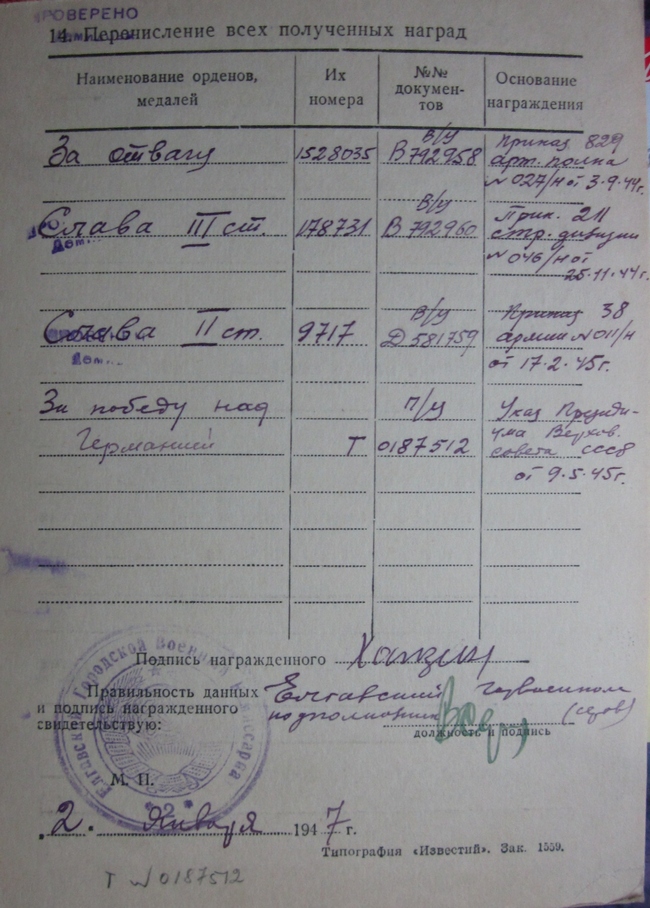 ПРОВЕРЕНО
14. Перечисление всех полученных наград
Наименование орденов, медалей
Их номера
№№ документов
Основание награждения
За отвагу 1528035 В/у В 792958 Приказ 829
арт. полка
№ 027/н от 3.9.44г.
Слава III ст. 178731 В/у В 792960 Прик. 211
стр. дивизии
№ 046/н от
25.11.44г.
Слава II ст. 9717 В/у Д 581759 Приказ 38
армии № 011/н
от 17.2.45г.
За победу над п/у Указ Президи-
Германией Т 0187512 ума Верхов.
совета СССР
от 9.5.45г.
Подпись награжденного
Правильность данных Елгавский горвоенком
и подпись награжденного подполковник
свидетельствую:
должность и подпись
М. П.
Елгавский Городской Военный Комиссариат
2. Января 1947 г.
Типография «Известий». Зак. 1559.
Т № 0187512